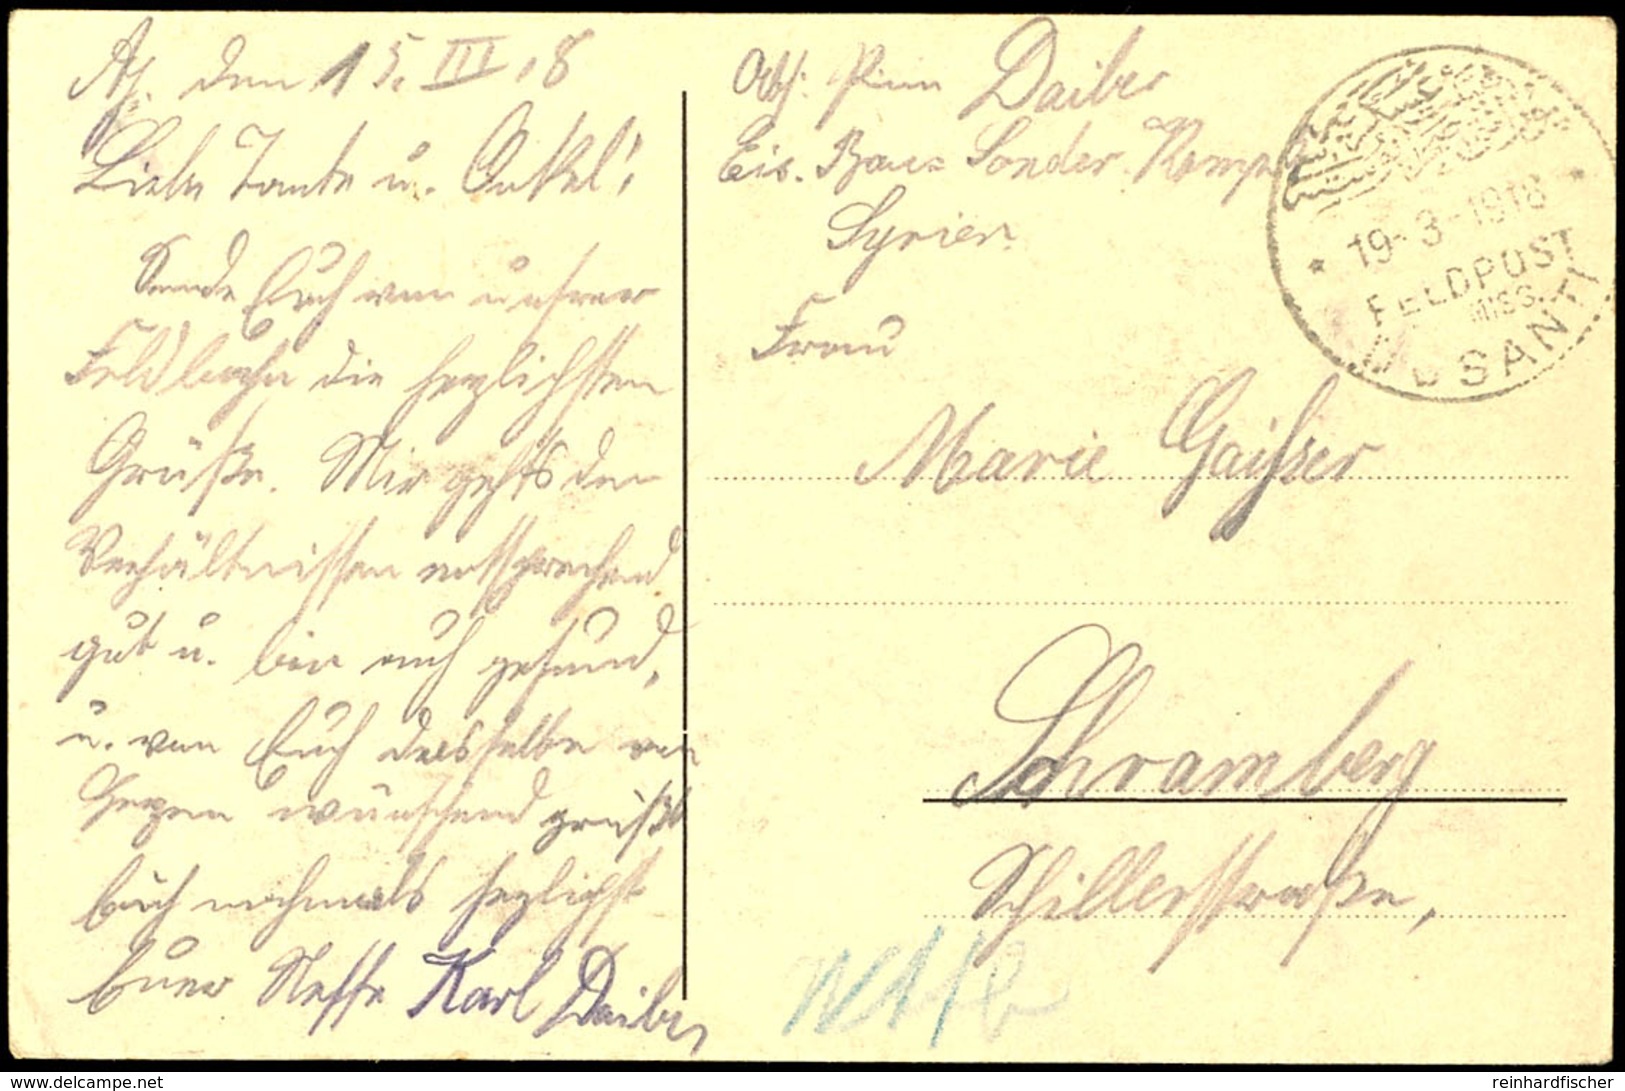 den 15. III. 18
Liebe Tante u. Onkel!
Sende Euch von unsrer
Feldbahn die herzlichsten
Grüße. Mir gehts den
Verhältnissen entsprechend
gut u. bin auch gesund,
u. von Euch dasselbe von
Herzen wünschend grüßt
Euch nochmals herzlichst
Euer Neffe Karl Daiber
Abs: Pion Daiber
Eis. Bau= Sonder. Komp.
Syrien
Frau
Marie Gaisser
Schramberg
Schillerstraße,
* 19-3-1918 *
FELDPOST
MISS.
www.delcampe.net
reinhardfischer